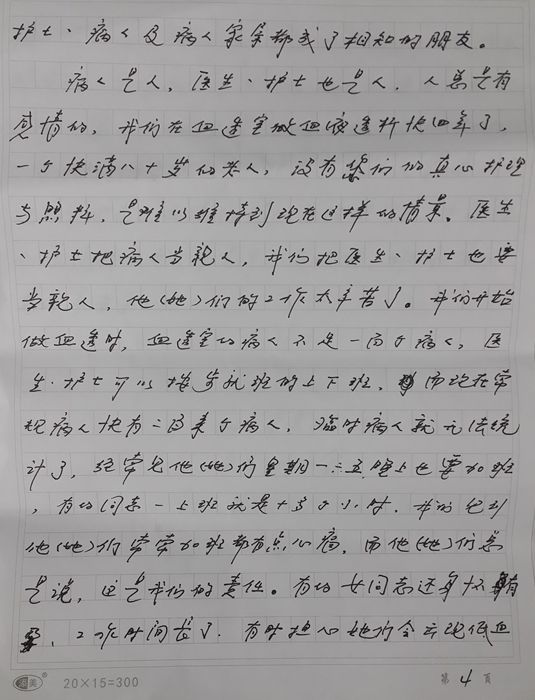 护士、病人及病人家属都成了相知的朋友。
病人是人，医生、护士也是人，人总是有
感情的，我们在血透室做血液透析快四年了，
一个快满八十岁的老人，没有您们的真心护理
与照料，是难以维持到现在这样的情景。医生
、护士把病人当亲人，我们把医生、护士也要
当亲人，他(她)们的工作太辛苦了。我们开始
做血透时，血透室的病人不足一百个病人，医
生、护士可以按步就班的上下班，而现在常
规病人快有二百来个病人，临时病人就无法统
计了，经常见他(她)们星期一三五晚上也要加班
，有的同志一上班就是十多个小时，我们见到
他(她)们常常加班都有点心痛，而他(她)们总
是说，这是我们的责任。有的女同志还身怀有
，工作时间长了，有时担心她们会出现低血
20×15=300
第 4 页